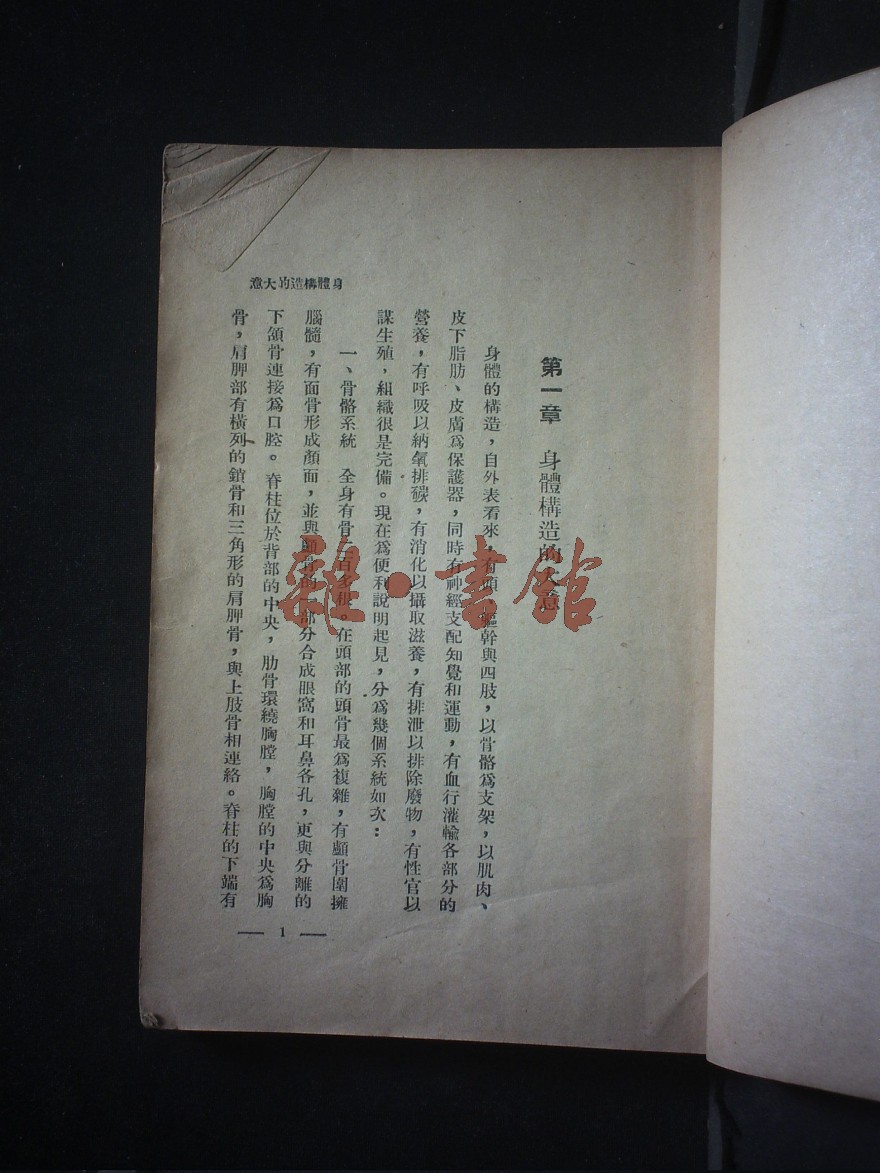 身體構造的大意
第一章 身體構造的大意
身體的構造，自外表看來，有頭、軀幹與四肢，以骨骼爲支架，以肌肉、
皮下脂肪、皮膚爲保護器，同時有神經支配知覺和運動，有血行灌輸各部分的
營養，有呼吸以納氧排碳，有消化以攝取滋養，有排泄以排除廢物，有性官以
謀生殖，組織很是完備。現在爲便利說明起見，分爲幾個系統如次：
一、骨骼系統 全身有骨二百多根。在頭部的頭骨最爲複雜，有顱骨圍擁
腦髓，有面骨形成顏面，並與顱骨的一部分合成眼窩和耳鼻各孔，更與分離的
下頷骨連接爲口腔。脊柱位於背部的中央，肋骨環繞胸膛，胸膛的中央爲胸
骨，肩胛部有橫列的鎖骨和三角形的肩胛骨，與上肢骨相連絡。脊柱的下端有
— 1 —
雜·書館